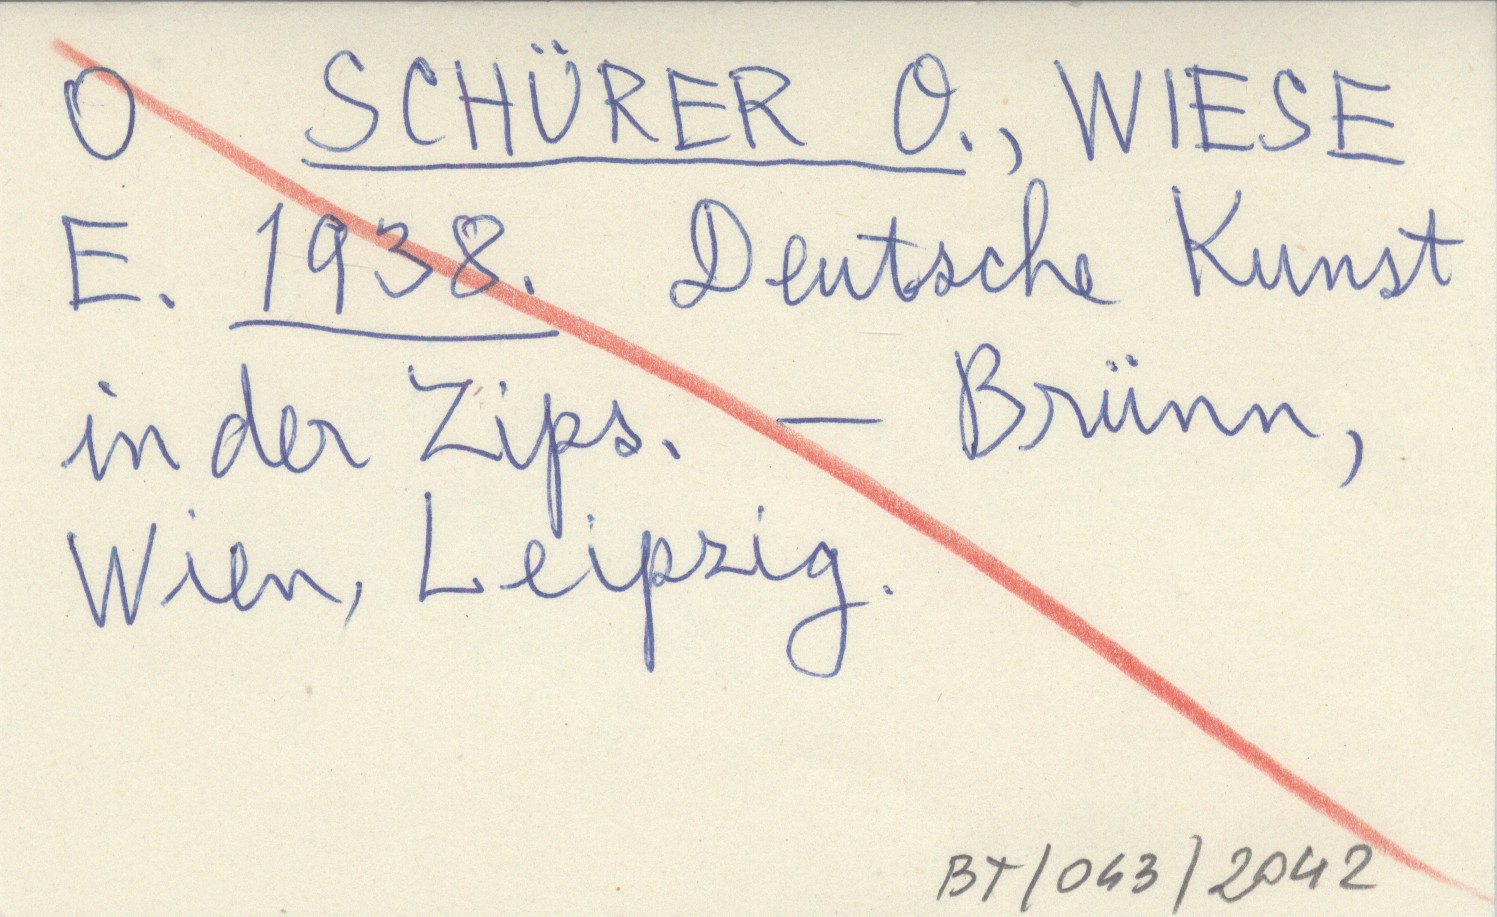 O SCHÜRER O., WIESE
E. 1938. Deutsche Kunst
in der Zips. — Brünn,
Wien, Leipzig.
BT/043/2042